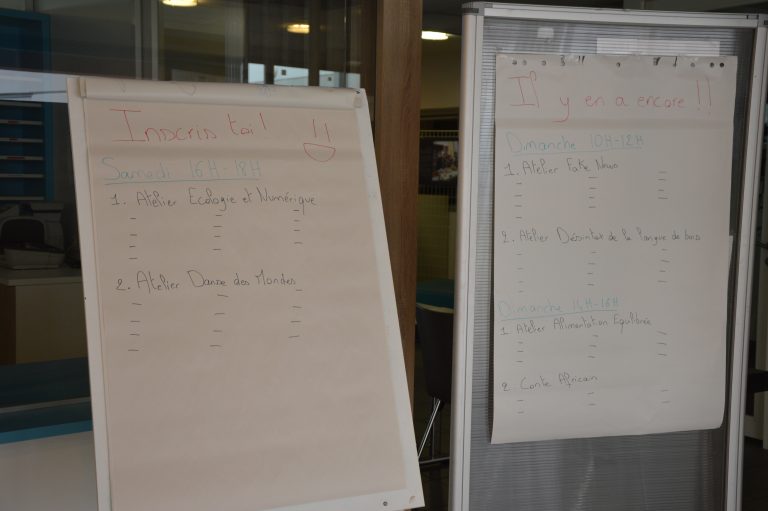 Inscris toi !
Samedi 16H-18H
1. Atelier Ecologie et Numérique
2. Atelier Danse des Mondes
Il y en a encore !!
Dimanche 10H-12H
1. Atelier Fake News
2. Atelier Désintox de la langue de bois
Dimanche 14H-16H
1 Atelier Alimentation Equilibrée
2. Conte Africain